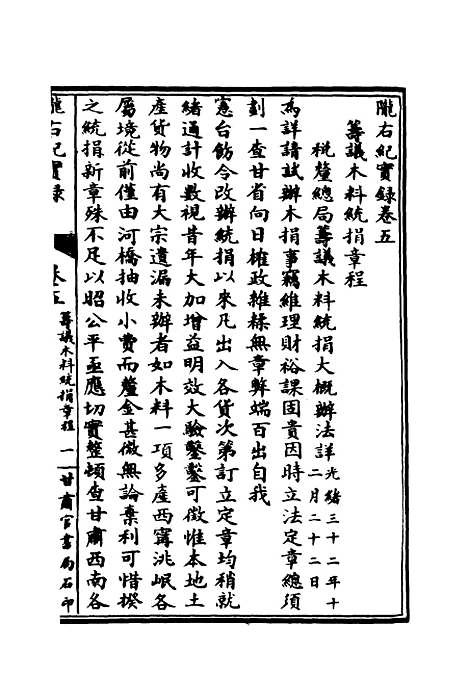 隴右紀實錄卷五
籌議木料統捐章程
稅釐總局籌議木料統捐大概辦法詳光緒三十二年十二月二十二日
為詳請試辦木捐事竊維理財裕課固貴因時立法定章總須
劃一查甘省向日榷政雜糅無章弊端百出自我
憲台飭令改辦統捐以來凡出入各貨次第訂立定章均稍就
緒通計收數視昔年大加增益明效大驗鑿鑿可徵惟本地土
產貨物尚有大宗遺漏未辦者如木料一項多產西寧洮岷各
屬境從前僅由河橋抽收小費而釐金甚微無論棄利可惜揆
之統捐新章殊不足以昭公平亟應切實整頓查甘肅西南各
隴右紀實錄
卷五
籌議木料統捐章程
一
甘肅官書局石印